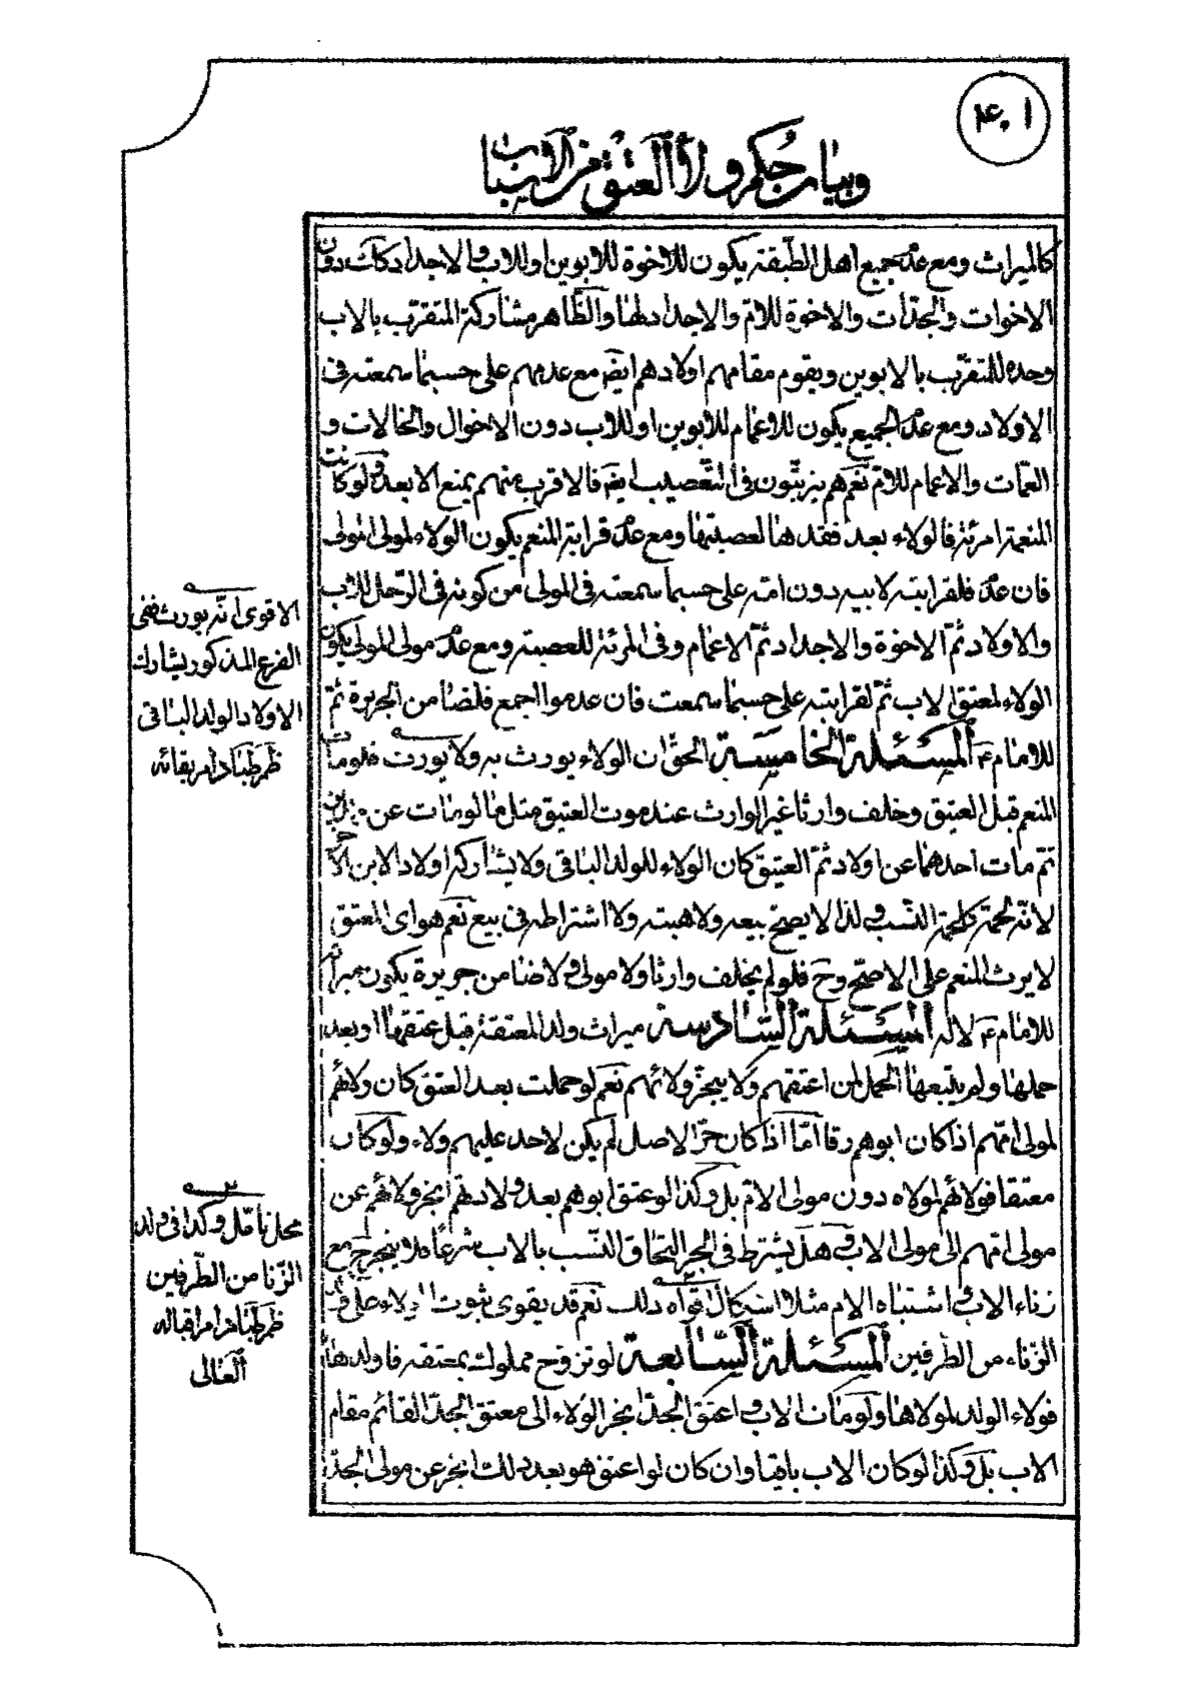 ٤٠١
وبيان حكم ولاء العتق من الاسباب
كالميراث ومع عدم جميع اهل الطبقة يكون للاخوة للابوين او للاب والاجداد كك دون
الاخوات والجدات والاخوة للام والاجداد لها والظاهر مشاركة المتقرب بالاب
وحده للمتقرب بالابوين ويقوم مقامهم اولادهم ايضا مع عدمهم على حسبما سمعته فى
الاولاد ومع عدم الجميع يكون للاعمام للابوين او للاب دون الاخوال والخالات و
العمات والاعمام للام نعم هم يترتبون فى التعصيب ايضا فالاقرب منهم يمنع الابعد ولو كانت
المنعمة امرئة فالولاء بعد فقدها لعصبتها ومع عدم قرابة المنعم يكون الولاء لمولى المولى
فان عدم فلقرابته لابيه دون امه على حسبما سمعته فى المولى من كونه فى الرجل للاب
والاولاد ثم الاخوة والاجداد ثم الاعمام وفى المرئة للعصبة ومع عدم مولى المولى يكون
الولاء لمعتق الاب ثم لقرابته على حسبما سمعت فان عدموا اجمع فلضامن الجريرة ثم
للامام ع المسئلة الخامسة الحق ان الولاء يورث به ولا يورث فلو مات
المنعم قبل العتيق وخلف وارثا غير الوارث عند موت العتيق مثل ما لو مات عن ولدين
ثم مات احدهما عن اولاد ثم العتيق كان الولاء للولد الباقى ولا يشاركه اولاد الابن الاخر
لانه لحمة كلحمة النسب ولذا لا يصح بيعه ولا هبته ولا اشتراطه فى بيع نعم هو اى المعتق
لا يرث المنعم على الاصح وح فلو لم يخلف وارثا ولا مولى ولا ضامن جريرة يكون ميراثه
للامام ع لا له المسئلة السادسة ميراث ولد المعتقة قبل عتقها او بعد
حملها ولم يتبعها الحمل لمن اعتقهم ولا ينجر ولائهم نعم لو حملت بعد العتق كان ولائهم
لمولى امهم اذا كان ابوهم رقا اما اذا كان حر الاصل لم يكن لاحد عليهم ولاء ولو كان
معتقا فولائهم لمولاه دون مولى الام بل وكذا لو عتق ابوهم بعد ولادتهم انجر ولائهم عن
مولى امهم الى مولى الاب وهل يشترط فى الجر التحاق النسب بالاب شرعا فلا ينجر ح مع
زناء الاب واشتباه الام مثلا اشكال اقواه ذلك نعم قد يقوى ثبوت الولاء على ولد
الزناء من الطرفين المسئلة السابعة لو تزوج مملوك بمعتقه فاولدها
فولاء الولد لمولاها ولو مات الاب واعتق الجد انجر الولاء الى معتق الجد القائم مقام
الاب بل وكذا لو كان الاب باقيا وان كان لو اعتق هو بعد ذلك انجر عن مولى الجد
الاقوى انه يورث ففى
الفرع المذكور يشارك
الاولاد الولد الباقى
ظم طبا دام بقائه
محل تأمل وكذا فى ولد
الزنا من الطرفين
ظم طبا دام اقباله
العالى